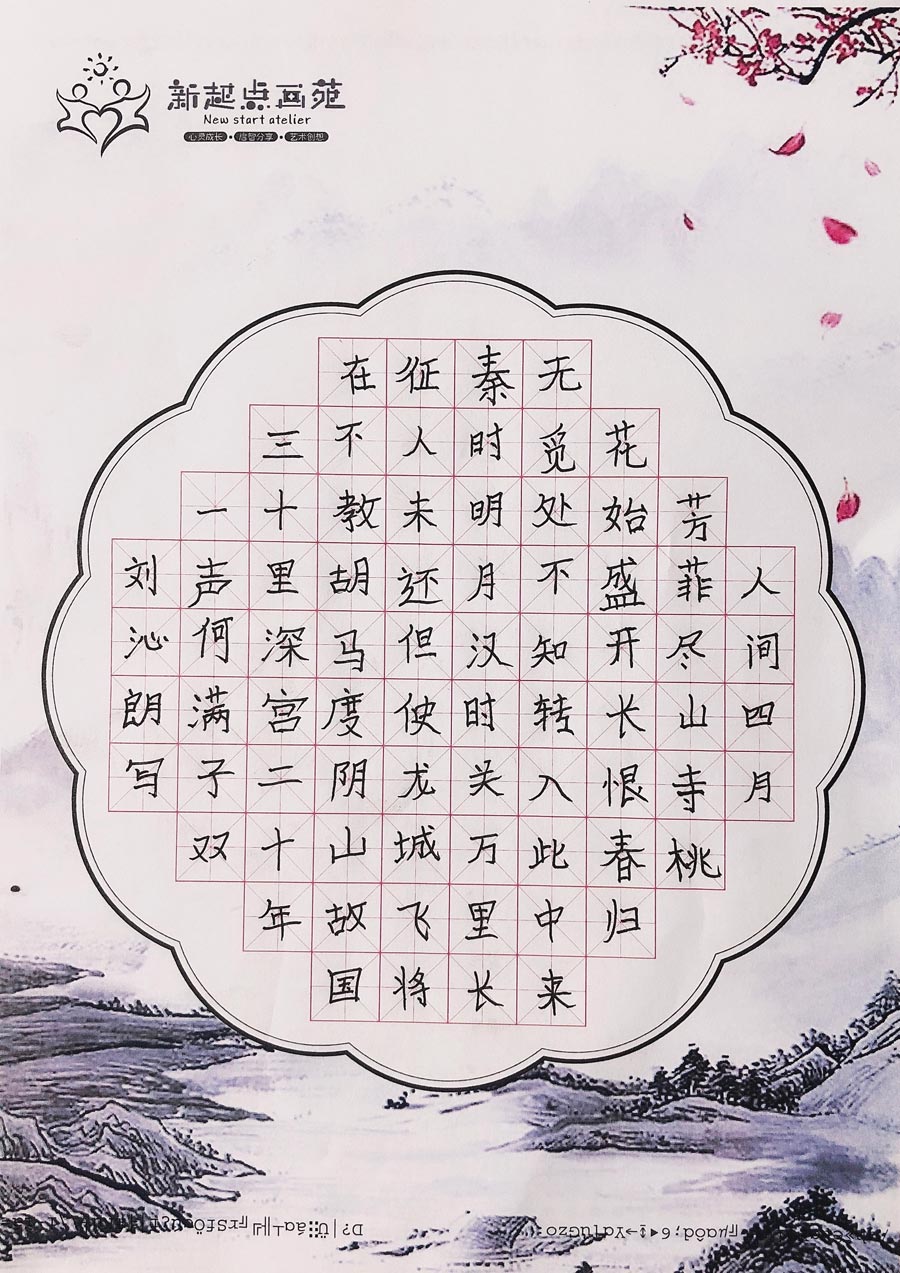 新起点画苑
New start atelier
心灵成长•启智分享•艺术创想
人间四月
芳菲尽山寺桃
花始盛开长恨春归
无觅处不知转入此中来
秦时明月汉时关万里长
征人未还但使龙城飞将
在不教胡马度阴山故国
三十里深宫二十年
一声何满子双
刘沁朗写